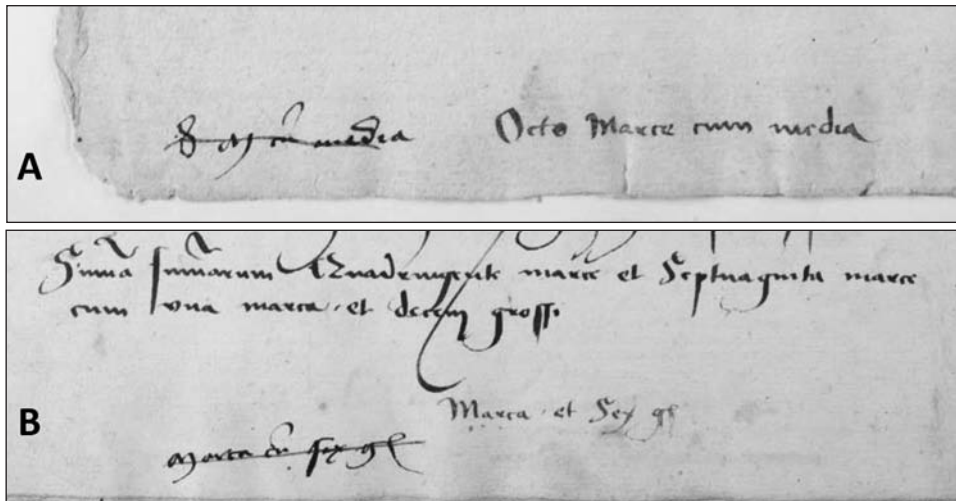 A
8 M cu media Octo Marce cum media
Suma sumarum Quadringente marce et Septuaginta marce
cum una marca et decem grossi
B
Marca et Sex gl
marca cu sex gl